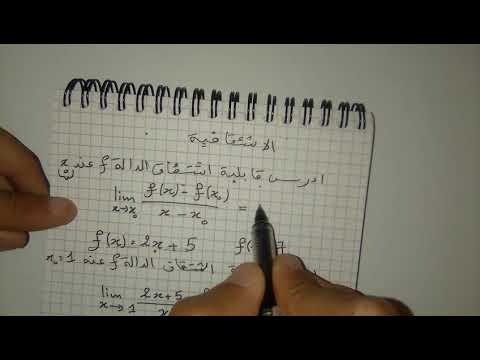 الاشتقاقية
ادرس قابلية اشتقاق الدالة f عند x₀
lim x→x₀ f(x) - f(x₀) / x - x₀ =
f(x) = 2x + 5 f(
اشتقاق الدالة f عند x₀=1
lim x→1 2x+5 -